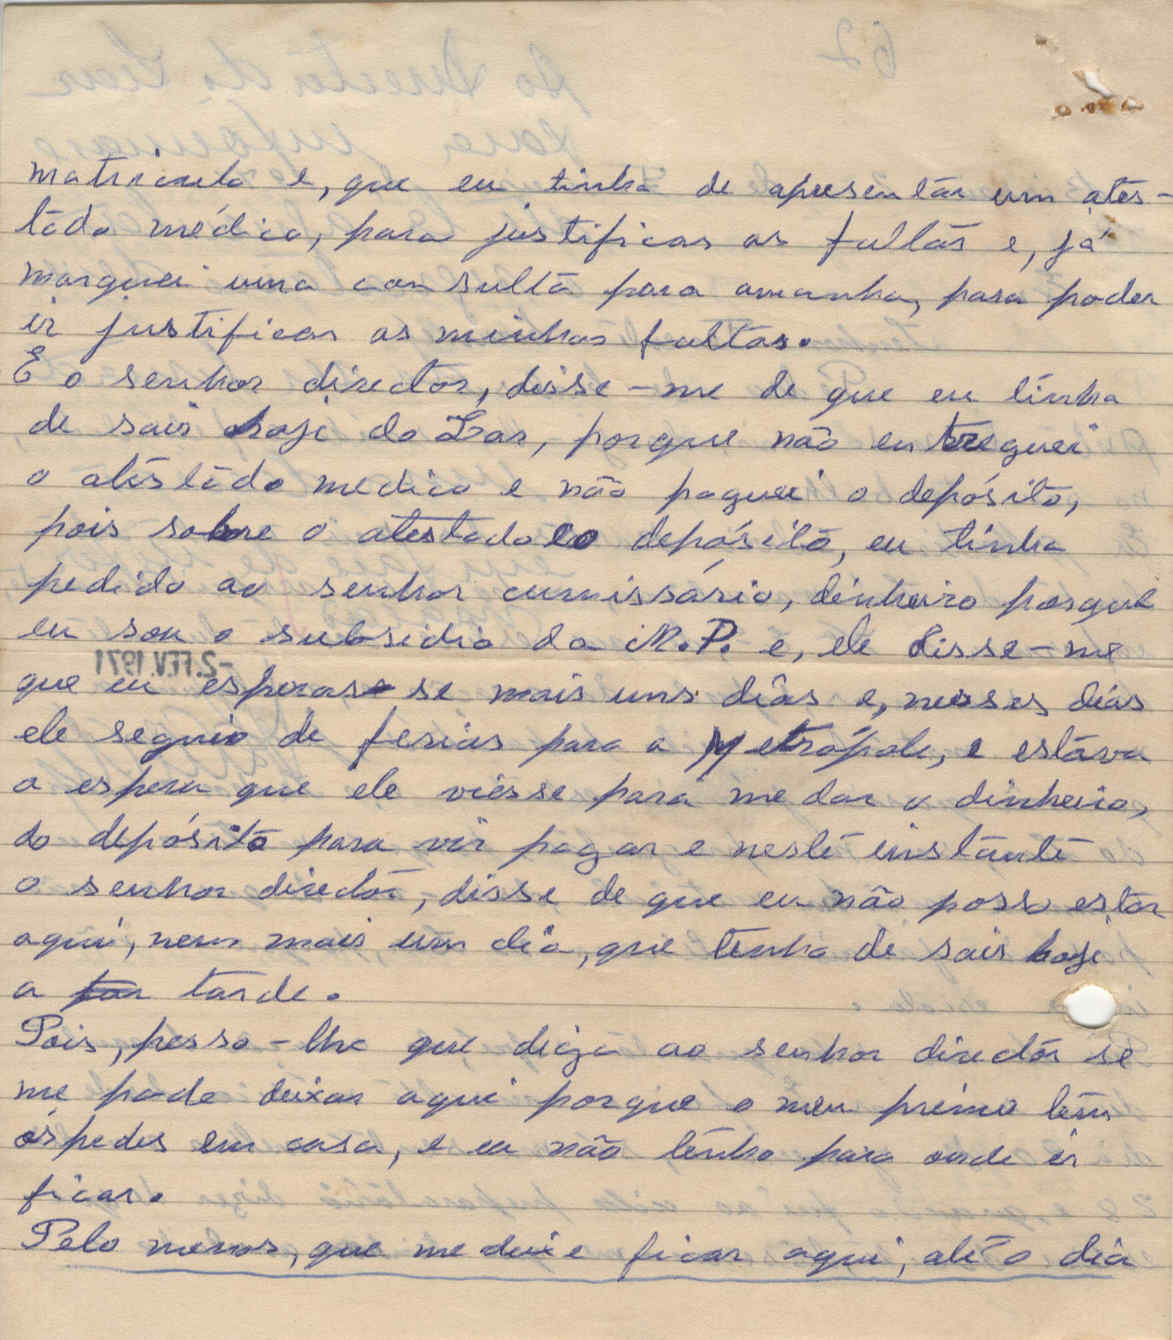 matricula e, que eu tinha de apresentár um átes-
tádo médico, para justificar as faltás e, já
marquei uma consultá para amanha, para poder
ir justificar as minhas faltas.
E o senhor director, disse-me de que eu tinha
de sair hoje do Lar, porque não entreguei
o atéstádo medico e não paguei o depósito,
pois sobre o atestado e o depósitó, eu tinha
pedido ao senhor cumissário, dinheiro porque
eu sou o subsidio da M.P. e, ele disse-me
-2.FEV.1971
que eu esperas-se mais uns diás e, nesses diás
ele seguio de ferias para a Metrópole, e estáva
a espera que ele viésse para me dar o dinheiro,
do depósito para vir pagar e nesté instánté
o senhor diréctór, disse de que eu não posso estár
aqui, nem mais um diá, que tenho de sair hoje
a tarde.
Pois, pesso-lhe que diga ao senhor diréctór se
me pode deixar aqui porque o meu primo tém
óspedes em casa, e eu não tênho para onde ir
ficar.
Pelo menos, que me deixe ficar aqui, até o diá